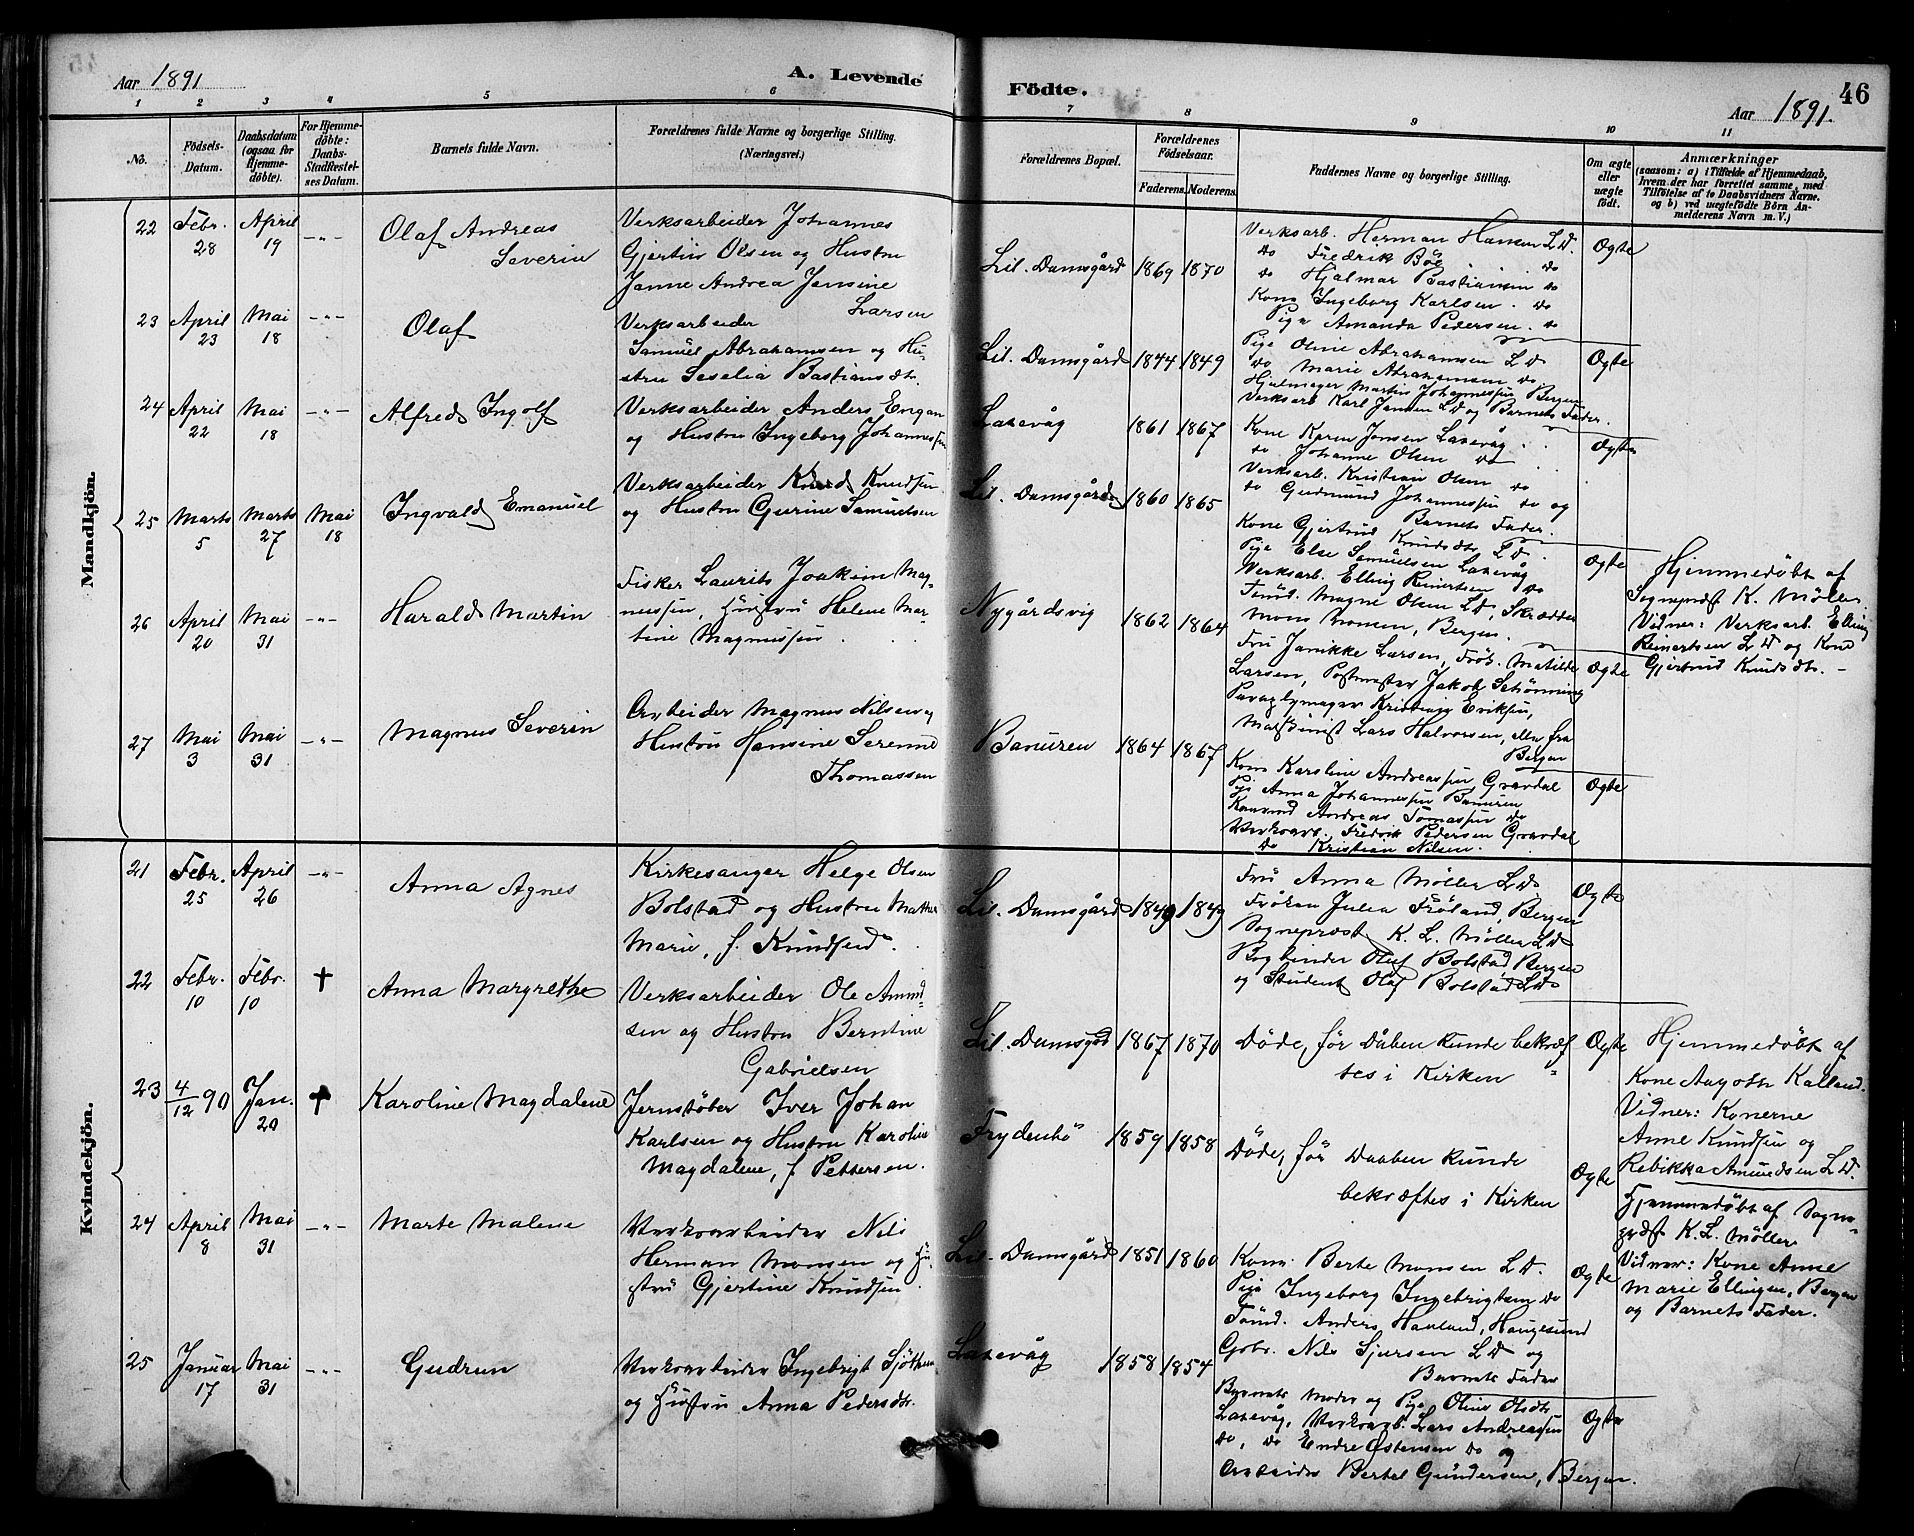 Aar 1891
A. Levende
Födte.
Aar 1891.
46
1 2 3 4 5 6 7 8 9 10 11
No.
Födsels-
Datum.
Daabsdatum
(ogsaa for
Hjemme-
døbte).
For Hjemme-
döbte:
Daabs-
Stadfæstel-
ses Datum.
Barnets fulde Navn.
Forældrenes fulde Navne og borgerlige Stilling.
(Næringsvei.)
Forældrenes Bopæl.
Forældrenes
Födselsaar.
Faderens. Moderens.
Faddernes Navne og borgerlige Stilling.
Om ægte
eller
uægte
født.
Anmærkninger
(saasom: a) i Tilfælde af Hjemmedaab,
hvem der har forrettet samme, med
Tilföielse af to Daabsvidners Navne.
og b) ved uægtefödte Börn An-
melderens Navn m. V.)
Mandkjön.
22 Febr. 28 April 19 -"- Olaf Andreas Severin
Verksarbeider Johannes
Gjertin Olsen og Hustru
Janne Andrea Jensine
Larsen
Lil. Damsgård 1869 1870
Verksarb. Herman Hansen L D.
do Fredrik Böe do
do Hjalmar Bastiansen do
Kone Ingeborg Karlsen. do
Pige Amanda Pedersen. do
Ogte
23 April 23 Mai 18 -"- Olaf
Verksarbeider
Samuel Abrahamsen og Hu-
stru Seselia Bastiansdtr.
Lil. Damsgård 1844 1849
Pige Oline Abrahamsen L D
do Marie Abrahamsen do
Martin Johannessen Bergen
Verksarb Karl Jansen L D og Barnets Fader.
Ogte
24 April 22 Mai 18 -"- Alfred Ingolf
Verksarbeider Anders Engan
og Hustru Ingeborg Johannessen
Laxevåg 1861 1867
Kone Karen Jensen Laxevåg
do Johanne Olsen do
Verksarb. Kristian Olsen do
do Gudmund Johannessen do og
Barnets Fader.
Ogte
25 Marts 5 Marts 27 Mai 18 Ingvald Emanuel
Verksarbeider Knud Knudsen
og Hustru Gurine Samuelsen
Lil. Damsgård 1860 1865
Kone Gjertrud Knudsdtr L D.
Pige Else Samuelsen Laxevåg
Verksarb. Elling Reinertsen do
Tømd. Magne Olsen L D, Skrædder
Mons Monsen, Bergen.
Ogte
Hjemmedøbt af
Sognepræst K. Møller
Vidner: Verksarb. Elling
Reinertsen L D og Kone
Gjertrud Knudsdtr. -
26 April 20 Mai 31 -"- Harald Martin
Fisker Laurits Joakim Mag-
nussen, Hustru Helene Mar-
tine Magnussen
Nygårdsvig 1862 1864
Fru Jannikke Larsen, Frök. Matilde
Larsen, Postmester Jakob Schönning
Paraplymager Kristian Eriksen,
Maskinist Lars Halvorsen, alle fra
Bergen
Ogte
27 Mai 3 Mai 31 -"- Magnus Severin
Arbeider Magnus Nilsen og
Hustru Hansine Serenne
Thomassen
Banuren 1864 1867
Kone Karoline Andreassen, Gravdal
Pige Anna Johannessen Banuren
Andreas Tomassen do
Verksarb. Fredrik Pedersen Gravdal
do Kristian Nilsen.
Ogte
Kvindekjön.
21 Febr. 25 April 26 -"- Anna Agnes
Kirkesanger Helge Olsen
Bolstad og Hustru Matha
Marie, f. Knudsen.
Lil. Damsgård 1849 1849
Fru Anna Møller L D
Frøken Julia Frøland, Bergen
Sognepræst K. L. Møller L D
Bogbinder Oluf Bolstad, Bergen
og Student Olaf Bolstad L D
Ogte
22 Febr. 10 Febr. 10 † Anna Margrethe
Verksarbeider Ole Amund-
sen og Hustru Berntine
Gabrielsen
Lil. Damsgd 1867 1870
Døde, før Dåben kunde bekræf-
tes i Kirken
Ogte
Hjemmedøbt af
Kone Aagoth Kalland.
Vidner: Konerne
Anne Knudsen og
Rebikka Amundsen L D.
23 4/12 90 Jan. 20 † Karoline Magdalene
Jernstøber Iver Johan
Karlsen og Hustru Karoline
Magdalene, f Pettersen.
Frydenbø 1859 1858
Döde, før Daaben kunde
bekræftes i Kirken
Ogte
Hjemmedøbt af Sogne-
præst K. L. Møller
Vidner: Kone Anne
Marie Ellingsen, Bergen
og Barnets Fader.
24 April 8 Mai 31 -"- Marte Malene
Verksarbeider Nils
Herman Monsen og Hu-
stru Gjertine Knudsen
Lil. Damsgård 1851 1860
Kone Berte Monsen L D.
Pige Ingeborg Ingebrigtsen do
Tømd. Anders Hauland, Haugesund
Gbr. Nils Sjursen L D og
Barnets Fader
Ogte
25 Januar 17 Mai 31 -"- Gudrun
Verksarbeider Ingebrigt
og Hustru Anna Pedersdtr.
Laxevåg 1858 1854
Barnets Moder og Pige Oline Olsdtr
Laxevåg, Verksarb. Lars Andreassen
do, do Endre Østensen do og
Arbeider Bertel Gundersen, Bergen.
Ogte